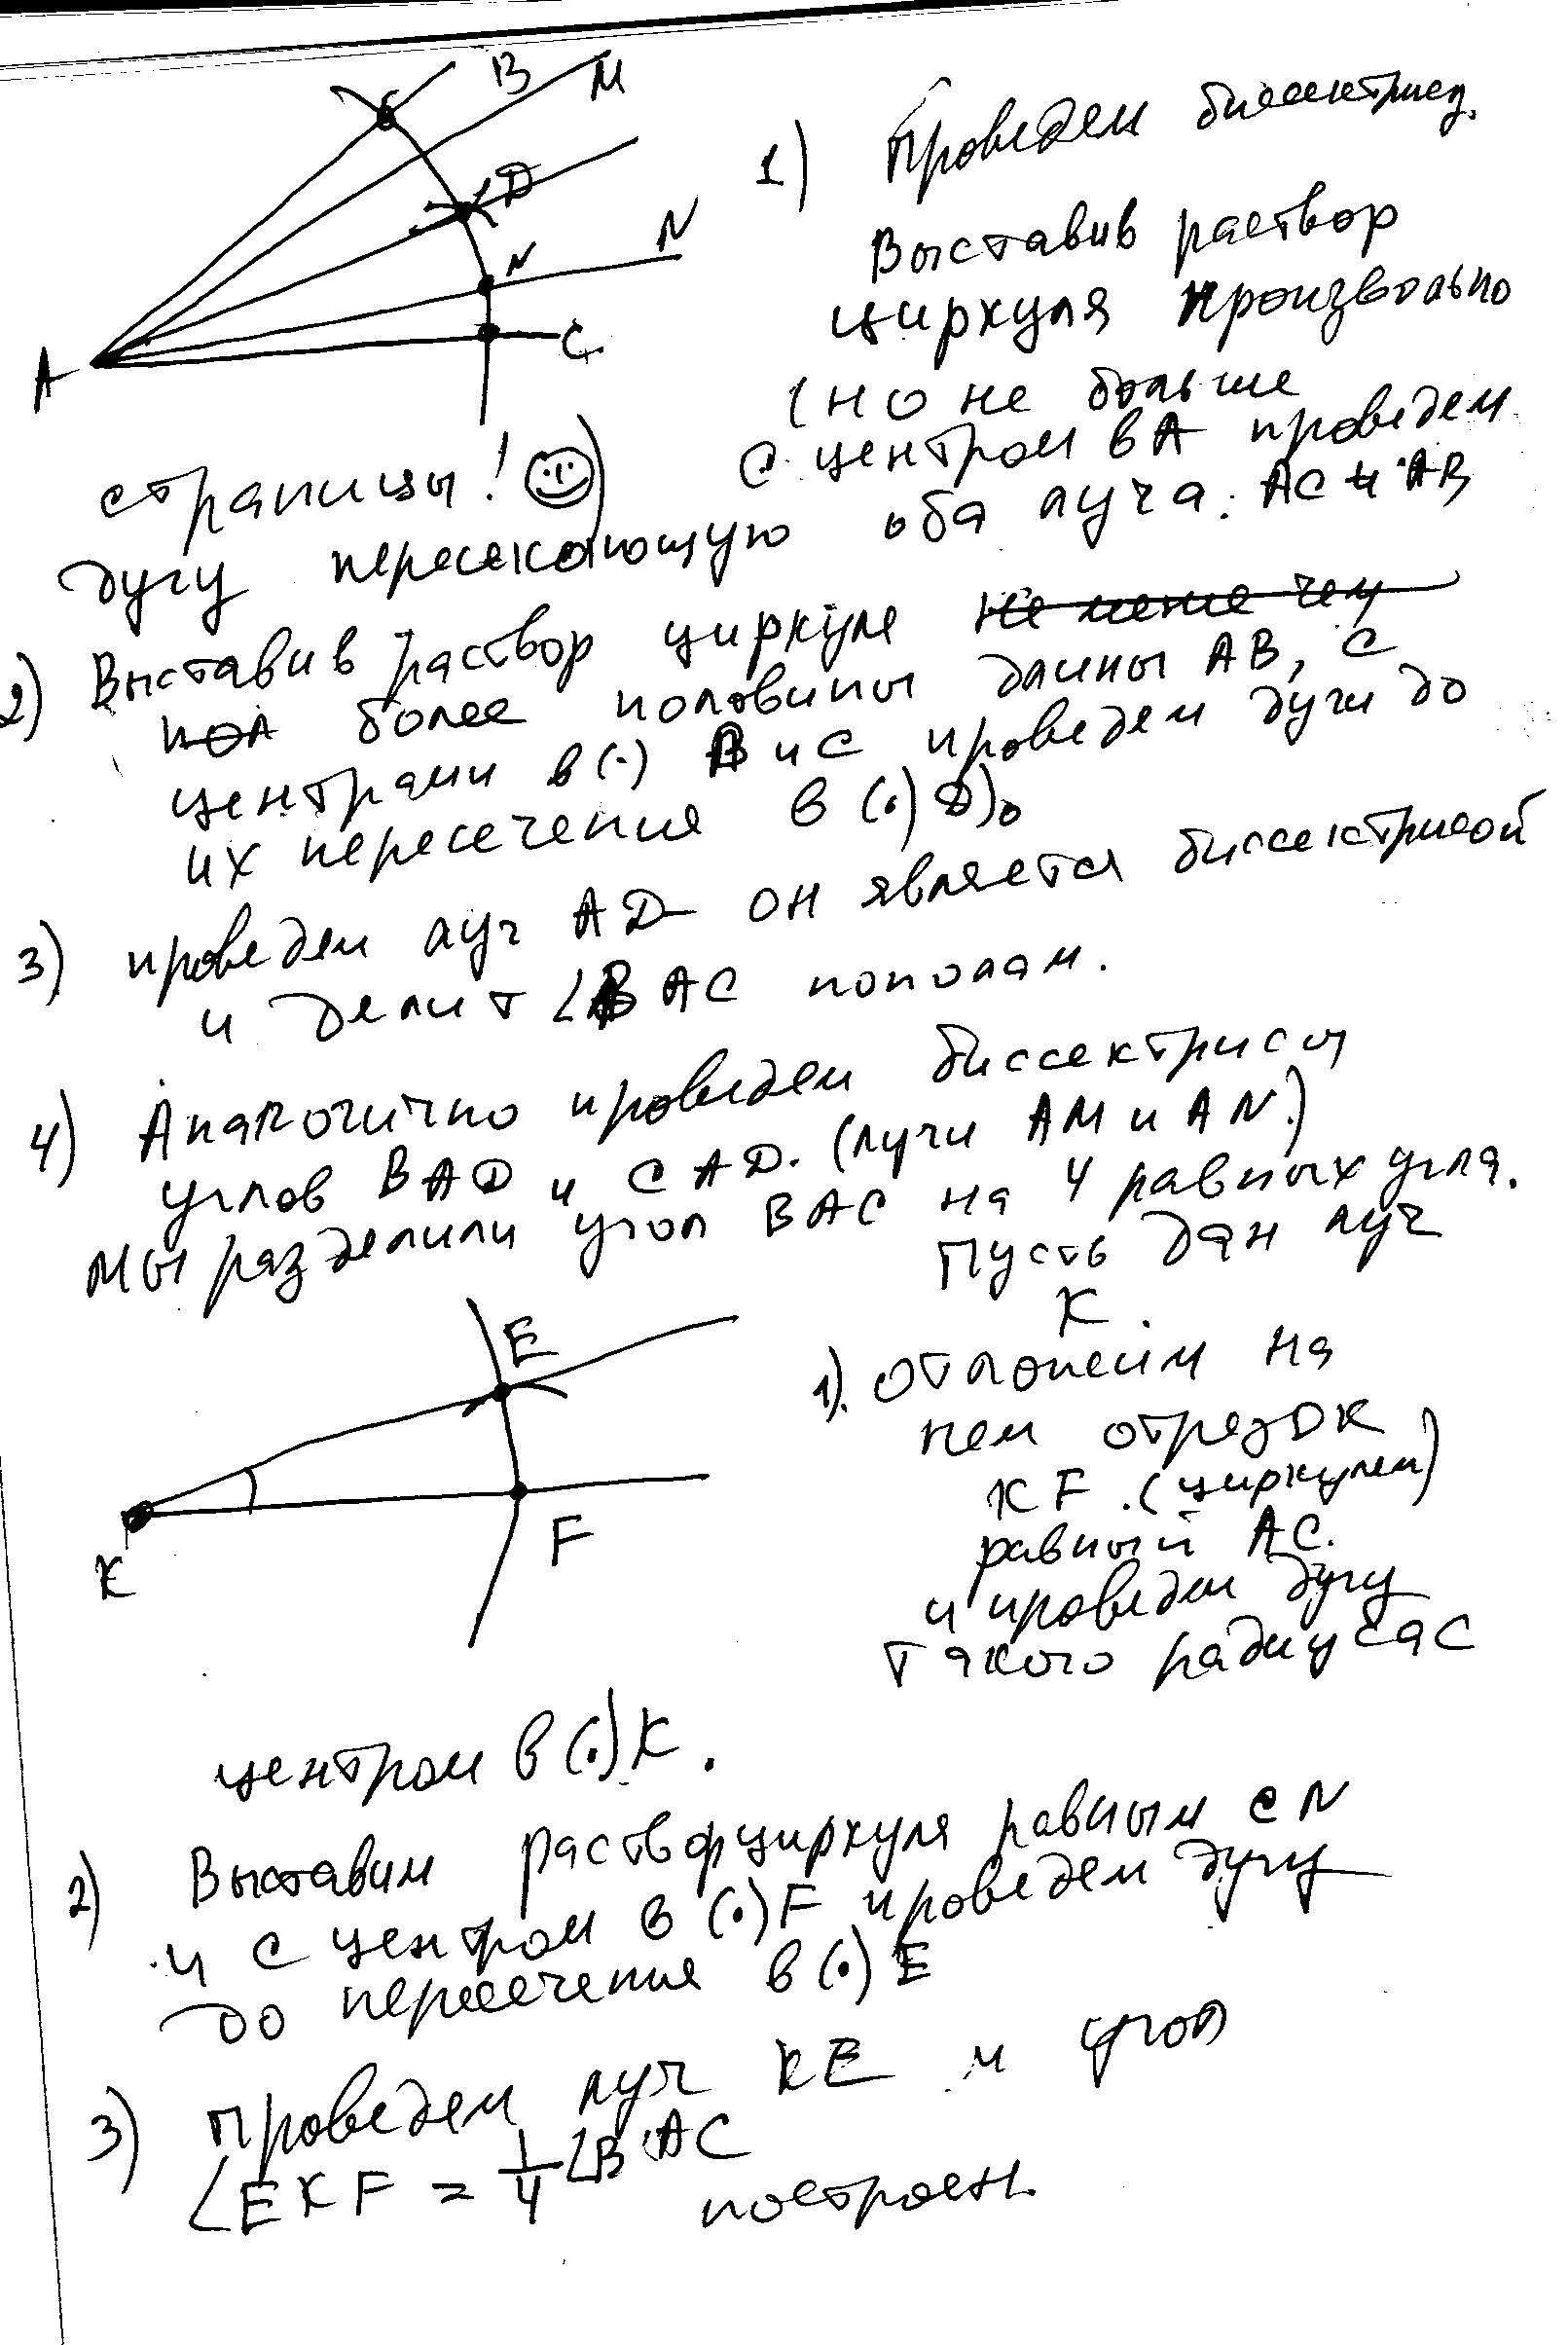 B M
D
N N
A C
1) Проведем биссектрису.
Выставив раствор
циркуля произвольно
(но не больше
страницы! ) с центром в A проведем
дугу пересекающую оба луча: AC и AB
2) Выставив раствор циркуля не менее чем
пол более половины длины AB, с
центрами в (·) B и C проведем дуги до
их пересечения в (·) D).
3) проведем луч AD он является биссектрисой
и делит ∠BAC пополам.
4) Аналогично проведем биссектрисы
углов BAD и CAD. (лучи AM и AN.)
Мы разделили угол BAC на 4 равных угла.
Пусть дан луч
K.
E
K F
1). отложим на
нем отрезок
KF. (циркулем)
равный AC.
и проведем дугу
такого радиуса с
центром в (·) K.
2) Выставим раствор циркуля равным CN
и с центром в (·) F проведем дугу
до пересечения в (·) E
3) Проведем луч KE и угол
∠EKF = 1/4 ∠BAC
построен.